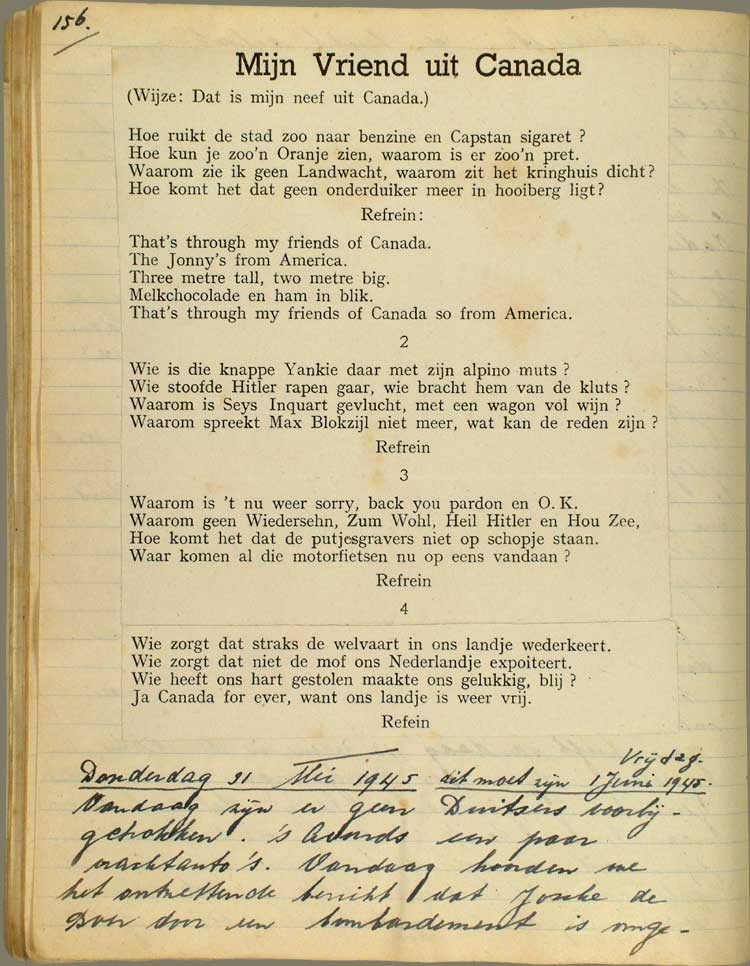 156.
Mijn Vriend uit Canada
(Wijze: Dat is mijn neef uit Canada.)
Hoe ruikt de stad zoo naar benzine en Capstan sigaret ?
Hoe kun je zoo'n Oranje zien, waarom is er zoo'n pret.
Waarom zie ik geen Landwacht, waarom zit het kringhuis dicht?
Hoe komt het dat geen onderduiker meer in hooiberg ligt?
Refrein:
That's through my friends of Canada.
The Jonny's from America.
Three metre tall, two metre big.
Melkchocolade en ham in blik.
That's through my friends of Canada so from America.
2
Wie is die knappe Yankie daar met zijn alpino muts ?
Wie stoofde Hitler rapen gaar, wie bracht hem van de kluts ?
Waarom is Seys Inquart gevlucht, met een wagon vol wijn ?
Waarom spreekt Max Blokzijl niet meer, wat kan de reden zijn ?
Refrein
3
Waarom is 't nu weer sorry, back you pardon en O. K.
Waarom geen Wiedersehn, Zum Wohl, Heil Hitler en Hou Zee,
Hoe komt het dat de putjesgravers niet op schopje staan.
Waar komen al die motorfietsen nu op eens vandaan ?
Refrein
4
Wie zorgt dat straks de welvaart in ons landje wederkeert.
Wie zorgt dat niet de mof ons Nederlandje expoiteert.
Wie heeft ons hart gestolen maakte ons gelukkig, blij ?
Ja Canada for ever, want ons landje is weer vrij.
Refein
Vrijdag.
Donderdag 31 Mei 1945 dit moet zijn 1 Juni 1945.
Vandaag zijn er geen Duitsers voorbij-
getrokken. 's Avonds een paar
vrachtauto's. Vandaag hoorden we
het ontzettende bericht dat de
Boer door een bombardement is omge-